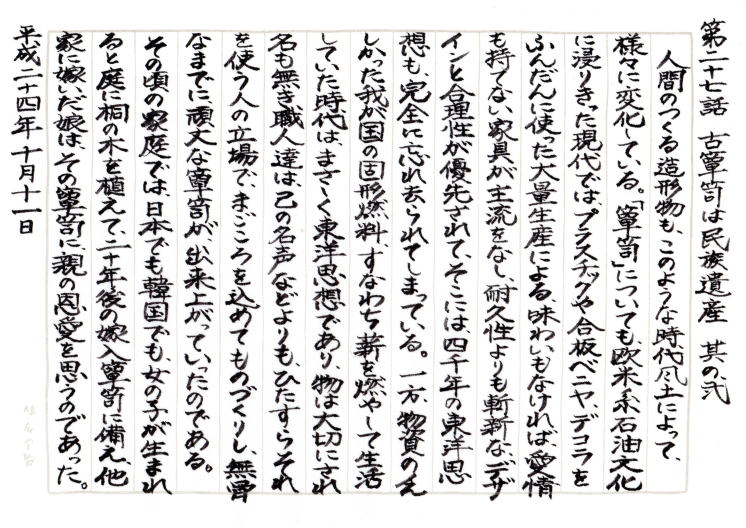 第二十七話　古箪笥は民族遺産　其の弐
人間のつくる造形物も、このような時代風土によって、
様々に変化している。「箪笥」についても、欧米系石油文化
に浸りきった現代では、プラスチックや合板ベニヤ、デコラを
ふんだんに使った大量生産による、味わいもなければ、愛情
も持てない家具が主流をなし、耐久性よりも斬新な、デザ
インと合理性が優先されて、そこには、四千年の東洋思
想も、完全に忘れ去られてしまっている。一方、物資の乏
しかった我が国の固形燃料、すなわち薪を燃やして生活
していた時代は、まさしく東洋思想であり、物は大切にされ
名も無き職人達は、己の名声などよりも、ひたすらそれ
を使う人の立場で、まごころを込めてものづくりし、無骨
なまでに頑丈な箪笥が、出来上がっていったのである。
その頃の家庭では、日本でも韓国でも、女の子が生まれ
ると庭に桐の木を植えて、二十年後の嫁入箪笥に備え、他
家に嫁いだ娘は、その箪笥に、親の恩愛を思うのであった。
平成二十四年　十月十一日